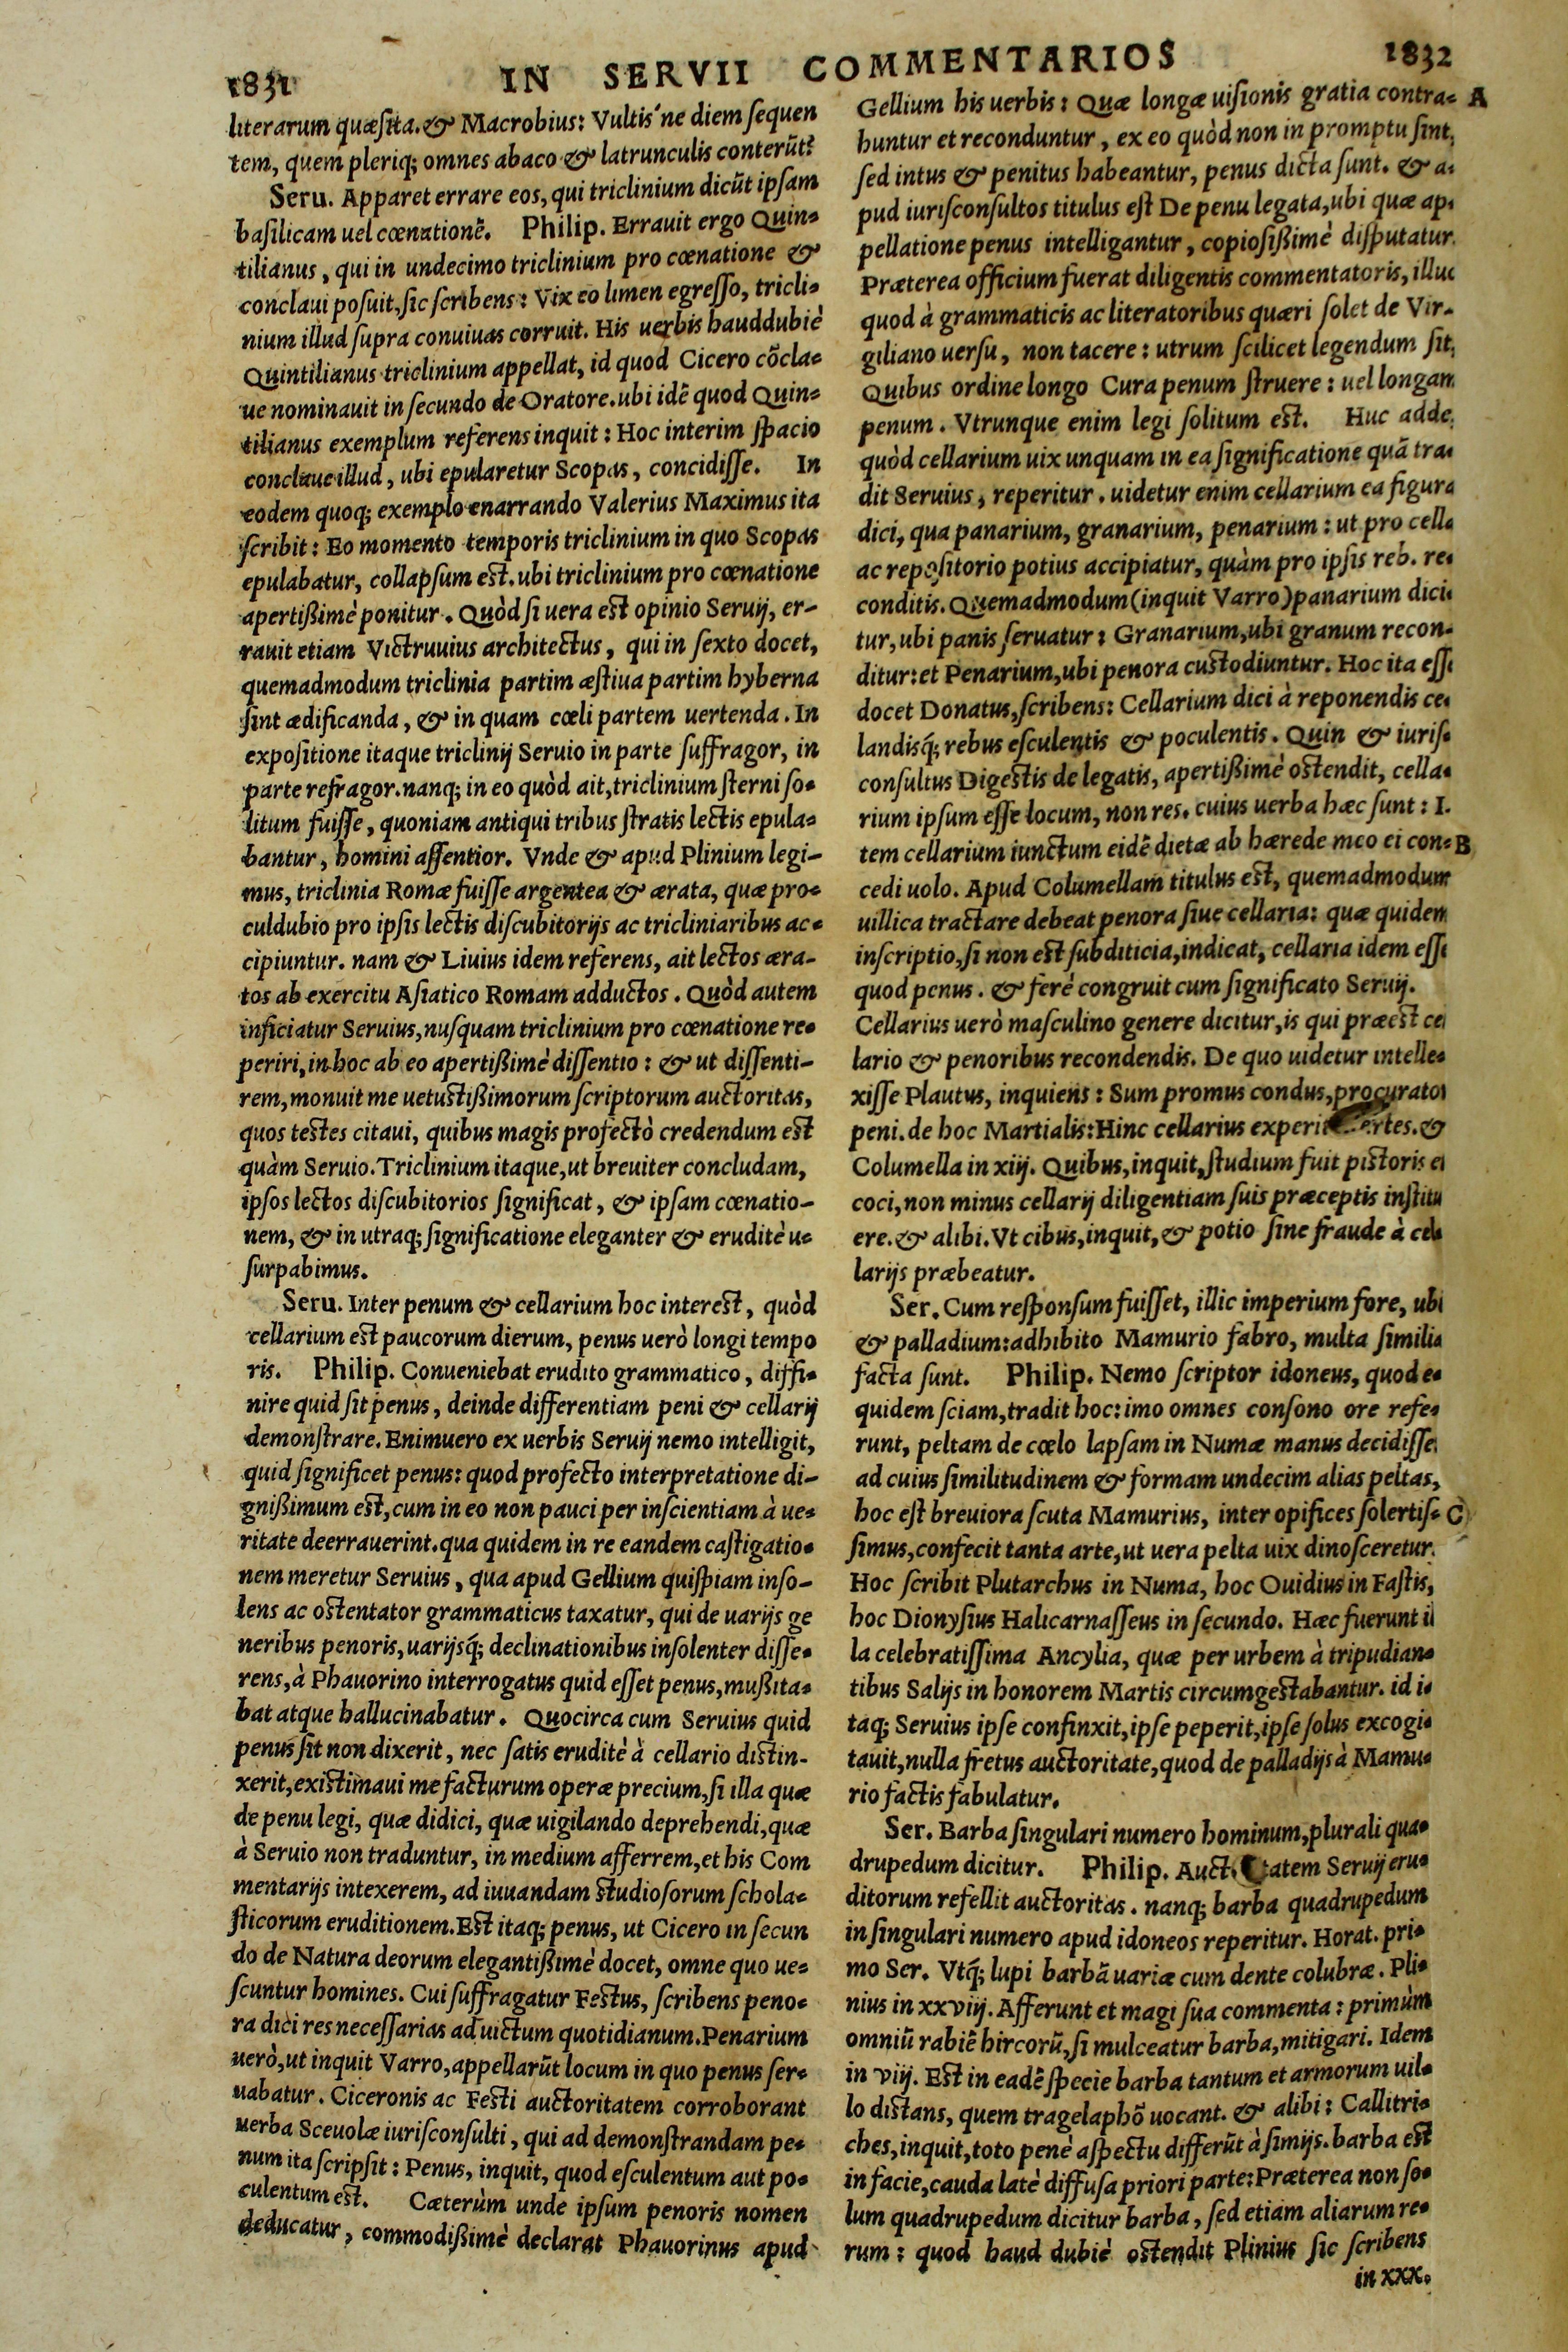 1831 IN SERVII COMMENTARIOS 1832
literarum quæsita. & Macrobius: Vultis'ne diem sequen
tem, quem pleriq; omnes abaco & latrunculis conterūt?
Seru. Apparet errare eos, qui triclinium dicūt ipsam
basilicam uel cœnationē. Philip. Errauit ergo Quin-
tilianus, qui in undecimo triclinium pro cœnatione &
conclaui posuit, sic scribens: Vix eo limen egresso, tricli-
nium illud supra conuiuas corruit. His uerbis hauddubiè
Quintilianus triclinium appellat, id quod Cicero cōcla-
ue nominauit in secundo de Oratore. ubi idē quod Quin-
tilianus exemplum referens inquit: Hoc interim spacio
conclaue illud, ubi epularetur Scopas, concidisse. In
eodem quoq; exemplo enarrando Valerius Maximus ita
scribit: Eo momento temporis triclinium in quo Scopas
epulabatur, collapsum est. ubi triclinium pro cœnatione
apertißimè ponitur. Quòd si uera est opinio Seruij, er-
rauit etiam Victruuius architectus, qui in sexto docet,
quemadmodum triclinia partim æstiua partim hyberna
sint ædificanda, & in quam cœli partem uertenda. In
expositione itaque triclinij Seruio in parte suffragor, in
parte refragor. nanq; in eo quòd ait, triclinium sterni so-
litum fuisse, quoniam antiqui tribus stratis lectis epula-
bantur, homini assentior. Vnde & apud Plinium legi-
mus, triclinia Romæ fuisse argentea & ærata, quæ pro-
culdubio pro ipsis lectis discubitorijs ac tricliniaribus ac-
cipiuntur. nam & Liuius idem referens, ait lectos æra-
tos ab exercitu Asiatico Romam adductos. Quòd autem
inficiatur Seruius, nusquam triclinium pro cœnatione re-
periri, in hoc ab eo apertißimè dissentio: & ut dissenti-
rem, monuit me uetustißimorum scriptorum auctoritas,
quos testes citaui, quibus magis profectò credendum est
quàm Seruio. Triclinium itaque, ut breuiter concludam,
ipsos lectos discubitorios significat, & ipsam cœnatio-
nem, & in utraq; significatione eleganter & eruditè u-
surpabimus.
Seru. Inter penum & cellarium hoc interest, quòd
cellarium est paucorum dierum, penus uerò longi tempo
ris. Philip. Conueniebat erudito grammatico, diffi-
nire quid sit penus, deinde differentiam peni & cellarij
demonstrare. Enimuero ex uerbis Seruij nemo intelligit,
quid significet penus: quod profecto interpretatione di-
gnißimum est, cum in eo non pauci per inscientiam à ue-
ritate deerrauerint. qua quidem in re eandem castigatio-
nem meretur Seruius, qua apud Gellium quispiam inso-
lens ac ostentator grammaticus taxatur, qui de uarijs ge
neribus penoris, uarijsq́; declinationibus insolenter disse-
rens, à Phauorino interrogatus quid esset penus, mußita-
bat atque hallucinabatur. Quocirca cum Seruius quid
penus sit non dixerit, nec satis eruditè à cellario distin-
xerit, existimaui me facturum operæ precium, si illa quæ
de penu legi, quæ didici, quæ uigilando deprehendi, quæ
à Seruio non traduntur, in medium afferrem, et his Com
mentarijs intexerem, ad iuuandam studiosorum schola-
sticorum eruditionem. Est itaq; penus, ut Cicero in secun
do de Natura deorum elegantißimè docet, omne quo ue-
scuntur homines. Cui suffragatur Festus, scribens peno-
ra dici res necessarias ad uictum quotidianum. Penarium
uerò, ut inquit Varro, appellarūt locum in quo penus ser-
uabatur. Ciceronis ac Festi auctoritatem corroborant
uerba Sceuolæ iurisconsulti, qui ad demonstrandam pe-
num ita scripsit: Penus, inquit, quod esculentum aut po-
culentum est. Cæterùm unde ipsum penoris nomen
deducatur, commodißimè declarat Phauorinus apud
Gellium his uerbis: Quæ longæ uisionis gratia contra- A
huntur et reconduntur, ex eo quòd non in promptu sint,
sed intus & penitus habeantur, penus dicta sunt. & a-
pud iurisconsultos titulus est De penu legata, ubi quæ ap-
pellatione penus intelligantur, copiosißimè disputatur.
Præterea officium fuerat diligentis commentatoris, illuc
quod à grammaticis ac literatoribus quæri solet de Vir-
giliano uersu, non tacere: utrum scilicet legendum sit,
Quibus ordine longo Cura penum struere: uel longam
penum. Vtrunque enim legi solitum est. Huc adde,
quòd cellarium uix unquam in ea significatione quā tra-
dit Seruius, reperitur. uidetur enim cellarium ea figura
dici, qua panarium, granarium, penarium: ut pro cella
ac repositorio potius accipiatur, quàm pro ipsis reb. re-
conditis. Quemadmodum (inquit Varro) panarium dici-
tur, ubi panis seruatur: Granarium, ubi granum recon-
ditur: et Penarium, ubi penora custodiuntur. Hoc ita esse
docet Donatus, scribens: Cellarium dici à reponendis ce-
landisq́; rebus esculentis & poculentis. Quin & iuris-
consultus Digestis de legatis, apertißimè ostendit, cella-
rium ipsum esse locum, non res. cuius uerba hæc sunt: I.
tem cellarium iunctum eidē dietæ ab hærede meo ei con- B
cedi uolo. Apud Columellam titulus est, quemadmodum
uillica tractare debeat penora siue cellaria: quæ quidem
inscriptio, si non est subditicia, indicat, cellaria idem esse
quod penus. & ferè congruit cum significato Seruij.
Cellarius uerò masculino genere dicitur, is qui præest cel
lario & penoribus recondendis. De quo uidetur intelle-
xisse Plautus, inquiens: Sum promus condus, procurator
peni. de hoc Martialis: Hinc cellarius experi ertes. &
Columella in xiij. Quibus, inquit, studium fuit pistoris et
coci, non minus cellarij diligentiam suis præceptis institu
ere. & alibi. Vt cibus, inquit, & potio sine fraude à cel
larijs præbeatur.
Ser. Cum responsum fuisset, illic imperium fore, ubi
& palladium: adhibito Mamurio fabro, multa similia
facta sunt. Philip. Nemo scriptor idoneus, quod e-
quidem sciam, tradit hoc: imo omnes consono ore refe-
runt, peltam de cœlo lapsam in Numæ manus decidisse,
ad cuius similitudinem & formam undecim alias peltas,
hoc est breuiora scuta Mamurius, inter opifices solertis- C
simus, confecit tanta arte, ut uera pelta uix dinosceretur.
Hoc scribit Plutarchus in Numa, hoc Ouidius in Fastis,
hoc Dionysius Halicarnasseus in secundo. Hæc fuerunt il
la celebratissima Ancylia, quæ per urbem à tripudian-
tibus Salijs in honorem Martis circumgestabantur. id i-
taq; Seruius ipse confinxit, ipse peperit, ipse solus excogi-
tauit, nulla fretus auctoritate, quod de palladijs à Mamu-
rio factis fabulatur.
Ser. Barba singulari numero hominum, plurali qua-
drupedum dicitur. Philip. Auct tatem Seruij eru-
ditorum refellit auctoritas. nanq; barba quadrupedum
in singulari numero apud idoneos reperitur. Horat. pri-
mo Ser. Vtq́; lupi barbā uariæ cum dente colubræ. Pli-
nius in xxviij. Afferunt et magi sua commenta: primùm
omniū rabiē hircorū, si mulceatur barba, mitigari. Idem
in viij. Est in eadē specie barba tantum et armorum uil-
lo distans, quem tragelaphō uocant. & alibi: Callitri-
ches, inquit, toto penè aspectu differūt à simijs. barba est
in facie, cauda latè diffusa priori parte: Præterea non so-
lum quadrupedum dicitur barba, sed etiam aliarum re-
rum: quod haud dubiè ostendit Plinius sic scribens
in xxx.